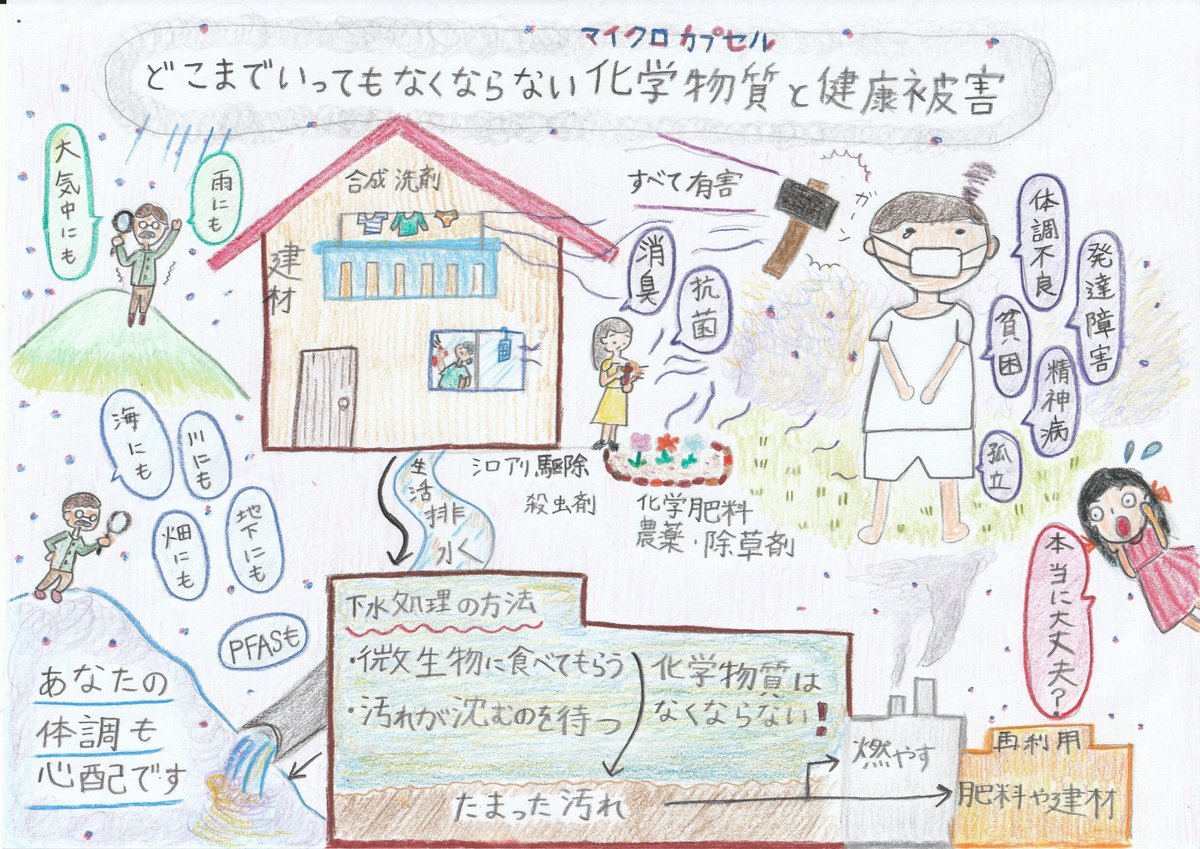 マイクロカプセル
どこまでいってもなくならない化学物質と健康被害
大気中にも
雨にも
合成洗剤
建材
すべて有害
ガーン
消臭
抗菌
体調不良
発達障害
貧困
精神病
孤立
海にも
川にも
畑にも
地下にも
PFASも
生活排水
シロアリ駆除
殺虫剤
化学肥料
農薬・除草剤
本当に大丈夫?
下水処理の方法
・微生物に食べてもらう
・汚れが沈むのを待つ
化学物質は
なくならない!
たまった汚れ
燃やす
再利用
肥料や建材
あなたの
体調も
心配です